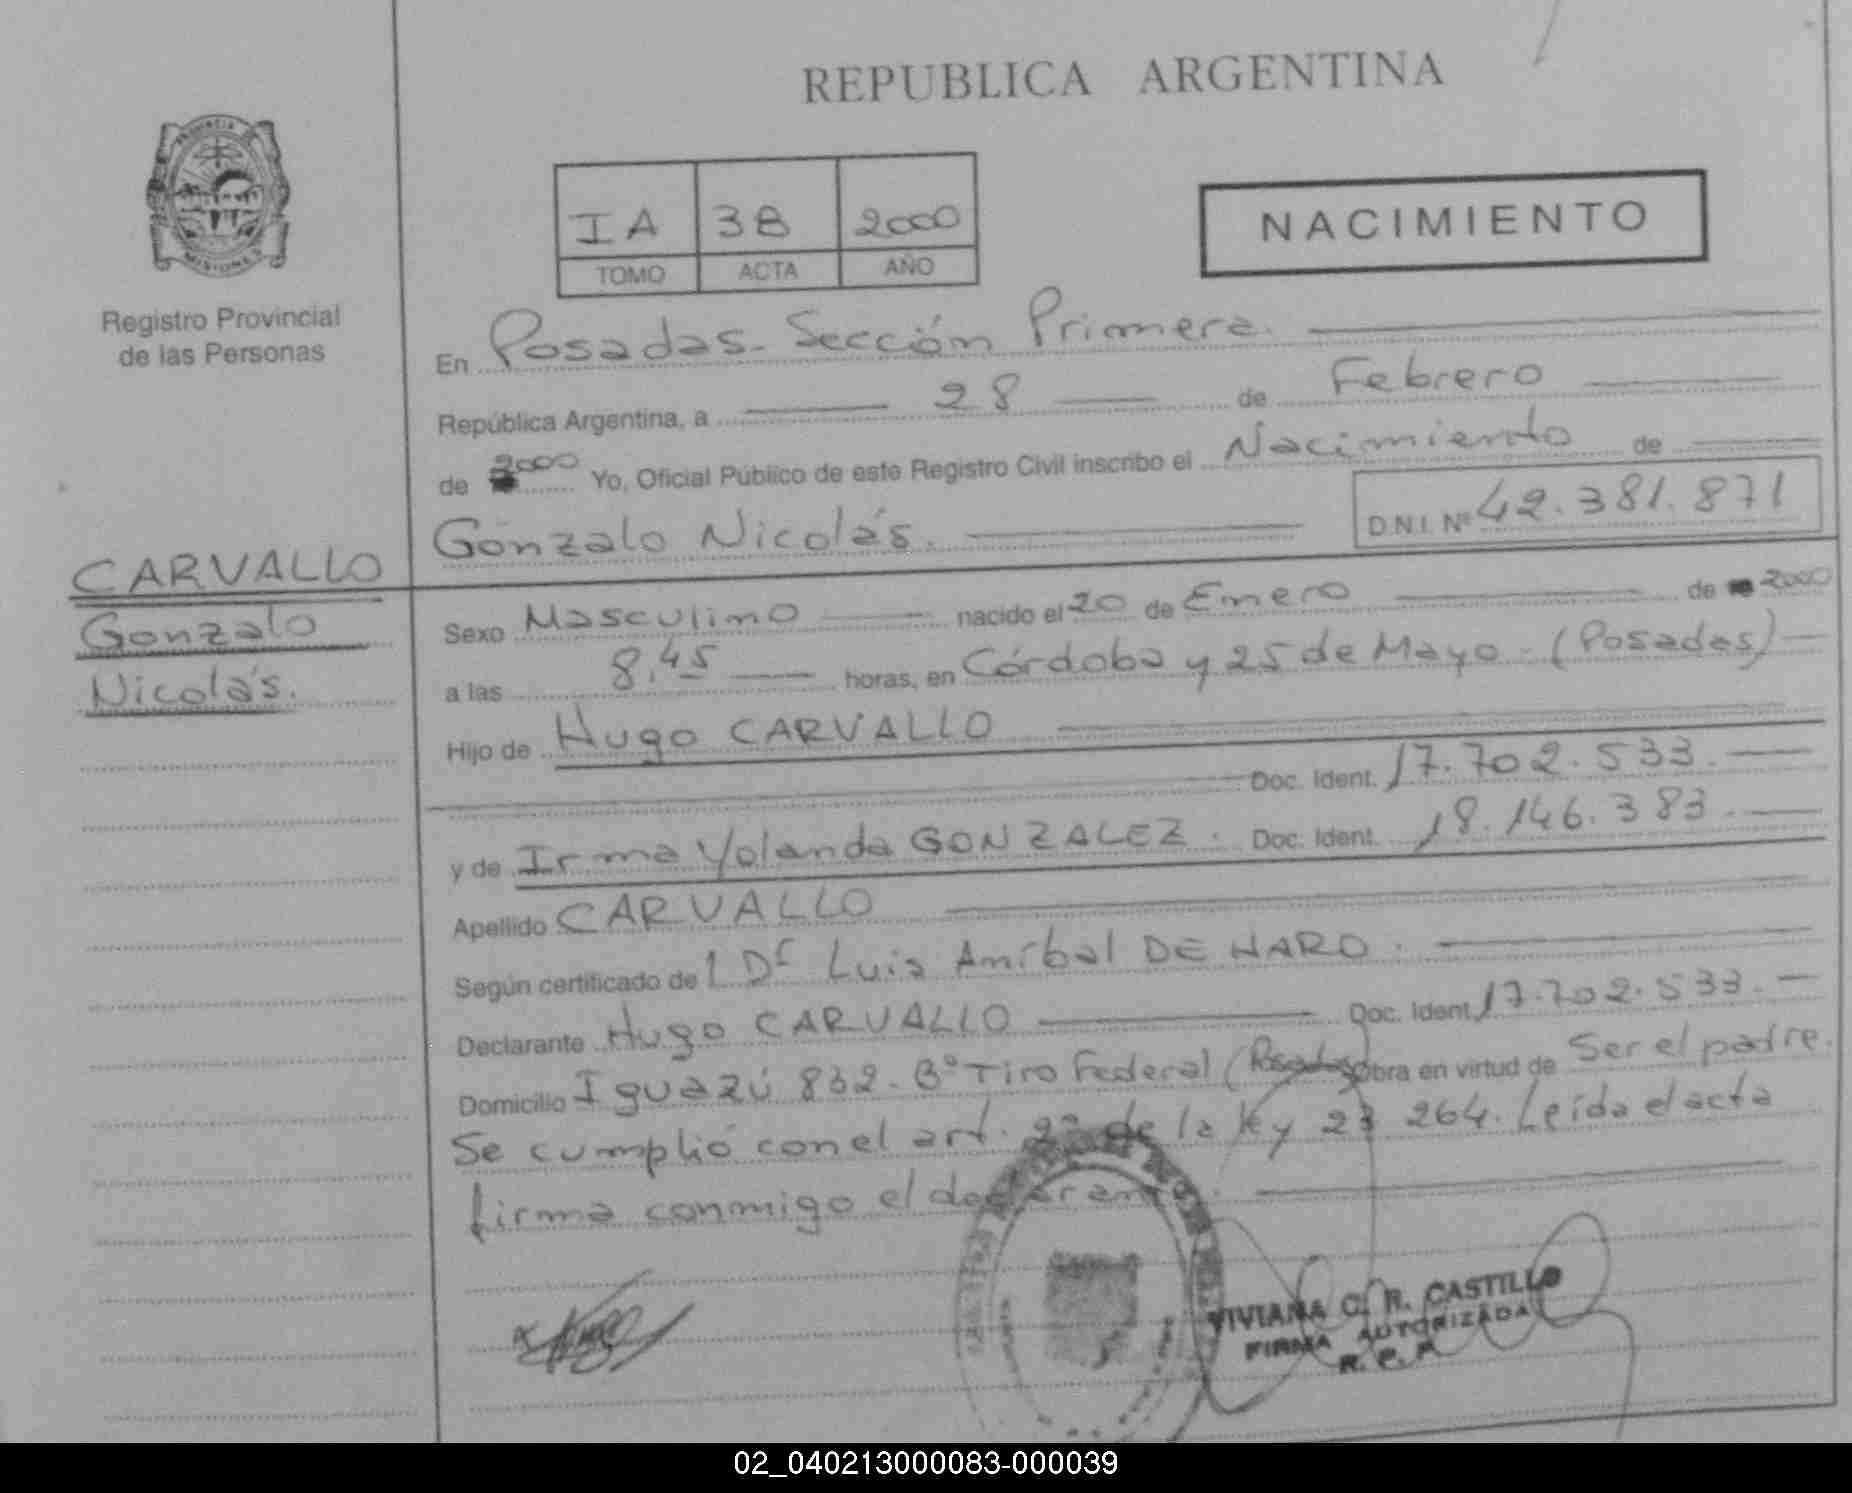 REPUBLICA ARGENTINA
PROVINCIA
MISIONES
Registro Provincial
de las Personas
IA 38 2000
TOMO ACTA AÑO
NACIMIENTO
En Posadas - Sección Primera.
República Argentina, a 28 de Febrero
de 2000 Yo, Oficial Público de este Registro Civil inscribo el Nacimiento de
Gonzalo Nicolás. D.N.I. Nº 42.381.871
CARVALLO
Gonzalo
Nicolás.
Sexo Masculino nacido el 20 de Enero de 2000
a las 8,45 horas, en Córdoba y 25 de Mayo - (Posadas)
Hijo de Hugo CARVALLO
Doc. Ident. 17.702.533.
y de Irma Yolanda GONZALEZ. Doc. Ident. 18.146.383.
Apellido CARVALLO
Según certificado del Dr Luis Aníbal DE HARO.
Declarante Hugo CARVALLO Doc. Ident. 17.702.533.
Domicilio Iguazú 832. Bº Tiro Federal (Posadas) Obra en virtud de Ser el padre.
Se cumplió con el art. 2º de la ley 23 264. Leída el acta
firma conmigo el declarante.
VIVIANA C. R. CASTILLO
FIRMA AUTORIZADA
R. P. P.
02_040213000083-000039